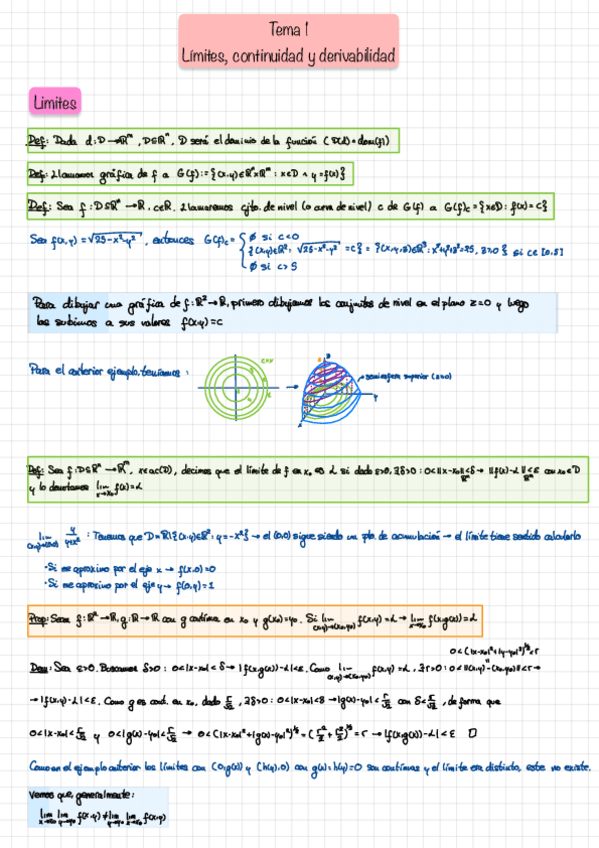 Tema 1
Límites, continuidad y derivabilidad
Límites
Def: Dada d: D → ℝᵐ, D⊆ℝⁿ, D será el dominio de la función (D(d) = dom(f))
Def: Llamamos gráfica de f a G(f):={(x,y)∈ℝⁿxℝᵐ: x∈D ∧ y=f(x)}
Def: Sea f: D⊆ℝⁿ → ℝ, c∈ℝ. Llamaremos cjto. de nivel (o curva de nivel) c de G(f) a G(f)c={x∈D: f(x)=c}
Sea f(x,y)=√25-x²-y², entonces G(f)c =
∅ si c<0
{(x,y)∈ℝ²: √25-x²-y² =c} = {(x,y,z)∈ℝ³: x²+y²+z²=25, z≥0} si c∈[0,5]
∅ si c>5
Para dibujar una gráfica de f: ℝ²→ℝ, primero dibujamos los conjuntos de nivel en el plano z=0 y luego
los subimos a sus valores f(x,y)=c
Para el anterior ejemplo, teníamos:
semiesfera superior (z≥0)
Def: Sea f: D⊆ℝⁿ → ℝᵐ, x∈ac(D), decimos que el límite de f en x₀ es L si dado ε>0, ∃δ>0: 0<||x-x₀||<δ → ||f(x)-L||<ε con x₀∈D
y lo denotamos lim x→x₀ f(x)=L
lim (x,y)→(0,0) y/y+x²: Tenemos que D=ℝ\{(x,y)∈ℝ²: y=-x²} → el (0,0) sigue siendo un pto. de acumulación → el límite tiene sentido calcularlo
·Si me aproximo por el eje x → f(x,0)=0
·Si me aproximo por el eje y → f(0,y)=1
Prop: Sean f: ℝ²→ℝ, g: ℝ→ℝ con g continua en x₀ y g(x₀)=y₀. Si lim (x,y)→(x₀,y₀) f(x,y)=L → lim x→x₀ f(x,g(x))=L
0<(|x-x₀|²+|y-y₀|²)^1/2<r
Dem: Sea ε>0. Buscamos δ>0: 0<|x-x₀|<δ → |f(x,g(x))-L|<ε. Como lim (x,y)→(x₀,y₀) f(x,y)=L, ∃r>0: 0<||(x,y)-(x₀,y₀)||<r →
→ |f(x,y)-L|<ε. Como g es cont. en x₀, dado r/√2, ∃δ>0: 0<|x-x₀|<δ → |g(x)-y₀|<r/√2 con δ<r/√2, de forma que
0<|x-x₀|<r/√2 y 0<|g(x)-y₀|<r/√2 → 0<(|x-x₀|²+|g(x)-y₀|²)^1/2<(r²/2+r²/2)^1/2=r → |f(x,g(x))-L|<ε □
Como en el ejemplo anterior los límites con (0,g(x)) y (h(y),0) con g(x)=h(y)=0 son continuas y el límite era distinto, este no existe.
Vemos que, generalmente:
lim x→x₀ lim y→y₀ f(x,y)≠lim y→y₀ lim x→x₀ f(x,y)